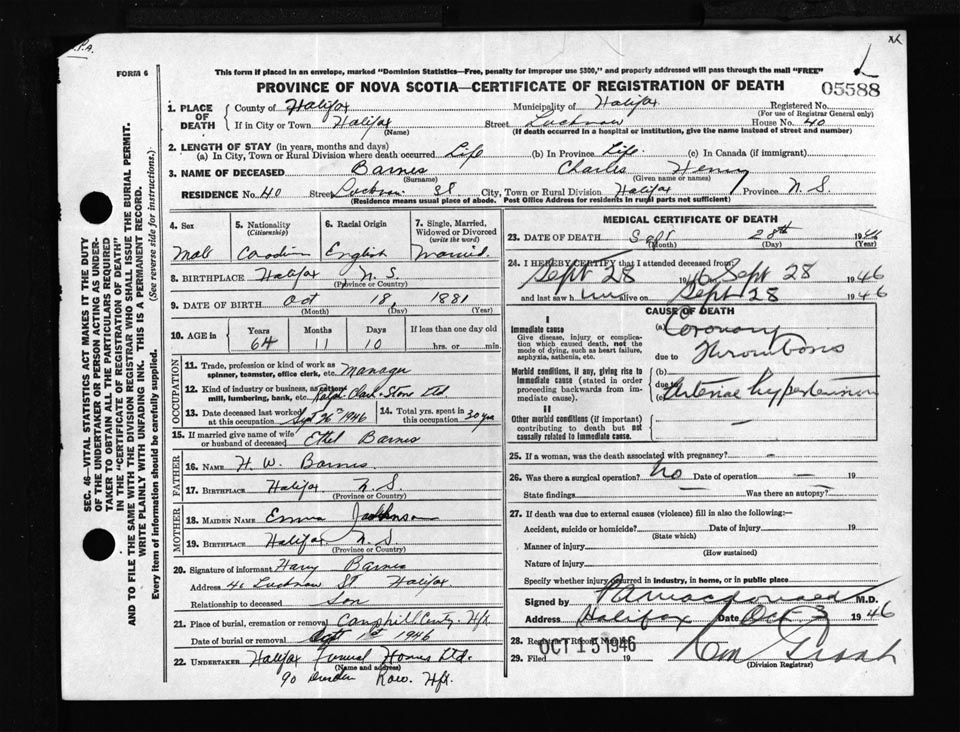 P.A.
FORM 6
This form if placed in an envelope, marked "Dominion Statistics—Free, penalty for improper use $300," and properly addressed will pass through the mail "FREE"
PROVINCE OF NOVA SCOTIA—CERTIFICATE OF REGISTRATION OF DEATH
05588
1. PLACE OF DEATH
County of Halifax Municipality of Halifax Registered No.
(For use of Registrar General only)
If in City or Town Halifax Street Lucknow House No. 40
(Name) (If death occurred in a hospital or institution, give the name instead of street and number)
2. LENGTH OF STAY (in years, months and days)
(a) In City, Town or Rural Division where death occurred Life (b) In Province Life. (c) In Canada (if immigrant)
3. NAME OF DECEASED Barnes Charles Henry
(Surname) (Given name or names)
RESIDENCE No. 40 Street St City, Town or Rural Division Halifax Province N.S.
(Residence means usual place of abode. Post Office Address for residents in rural parts not sufficient)
4. Sex
Male
5. Nationality
(Citizenship)
6. Racial Origin
English
7. Single, Married, Widowed or Divorced
(write the word)
Married.
8. BIRTHPLACE Halifax N.S.
(Province or Country)
9. DATE OF BIRTH Oct 18, 1881
(Month) (Day) (Year)
10. AGE in
Years Months Days If less than one day old
64 11 10 hrs. or min.
OCCUPATION
11. Trade, profession or kind of work as
spinner, teamster, office clerk, etc. Manager
12. Kind of industry or business, as cotton
mill, lumbering, bank, etc. Ltd
13. Date deceased last worked
at this occupation Sept 26th 1946
14. Total yrs. spent in
this occupation 30 yrs
15. If married give name of wife
or husband of deceased Ethel Barnes
FATHER
16. NAME H. W. Barnes.
17. BIRTHPLACE Halifax N.S.
(Province or Country)
MOTHER
18. MAIDEN NAME Emma
19. BIRTHPLACE Halifax N.S.
(Province or Country)
20. Signature of informant Harry Barnes
Address Lucknow St Halifax.
Relationship to deceased Son
21. Place of burial, cremation or removal Hfx.
Date of burial or removal Oct 1st 1946
22. UNDERTAKER Halifax Funeral Homes Ltd.
(Name and address)
90 Dresden Row. Hfx.
MEDICAL CERTIFICATE OF DEATH
23. DATE OF DEATH Sept 28th 1946
(Month) (Day) (Year)
24. I HEREBY CERTIFY that I attended deceased from
Sept 28 1946 to Sept 28 1946
and last saw him alive on Sept 28 1946
CAUSE OF DEATH
I
Immediate cause
Give disease, injury or complication which caused death, not the mode of dying, such as heart failure, asphyxia, asthenia, etc.
(a) Coronary
due to Thrombosis
Morbid conditions, if any, giving rise to immediate cause (stated in order proceeding backwards from immediate cause).
(b)
due to
(c) Arterial hypertension
II
Other morbid conditions (if important) contributing to death but not causally related to immediate cause.
25. If a woman, was the death associated with pregnancy? –
26. Was there a surgical operation? No Date of operation — 19
State findings Was there an autopsy?
27. If death was due to external causes (violence) fill in also the following:—
Accident, suicide or homicide? Date of injury 19
(State which)
Manner of injury
(How sustained)
Nature of injury
Specify whether injury occurred in industry, in home, or in public place
Signed by Macdonald M.D.
Address Halifax Date Oct 1946
28. Registrar's Record Number
OCT 15 1946
29. Filed 19
(Division Registrar)
SEC. 46—VITAL STATISTICS ACT MAKES IT THE DUTY
OF THE UNDERTAKER OR PERSON ACTING AS UNDER-
TAKER TO OBTAIN ALL THE PARTICULARS REQUIRED
IN THE "CERTIFICATE OF REGISTRATION OF DEATH"
AND TO FILE THE SAME WITH THE DIVISION REGISTRAR WHO SHALL ISSUE THE BURIAL PERMIT.
WRITE PLAINLY WITH UNFADING INK. THIS IS A PERMANENT RECORD.
Every item of information should be carefully supplied. (See reverse side for instructions.)